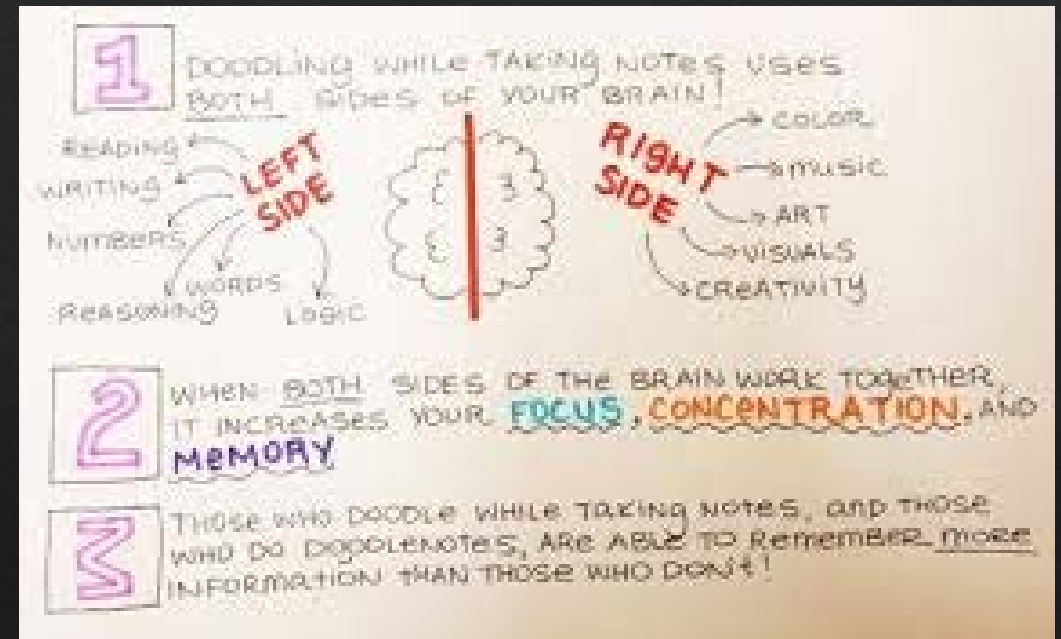 1
DOODLING WHILE TAKING NOTES USES
BOTH SIDES OF YOUR BRAIN!
LEFT
SIDE
READING
WRITING
NUMBERS
REASONING
WORDS
LOGIC
RIGHT
SIDE
COLOR
MUSIC
ART
VISUALS
CREATIVITY
2
WHEN BOTH SIDES OF THE BRAIN WORK TOGETHER,
IT INCREASES YOUR FOCUS, CONCENTRATION, AND
MEMORY
3
THOSE WHO DOODLE WHILE TAKING NOTES, AND THOSE
WHO DO DOODLENOTES, ARE ABLE TO REMEMBER MORE
INFORMATION THAN THOSE WHO DON'T!